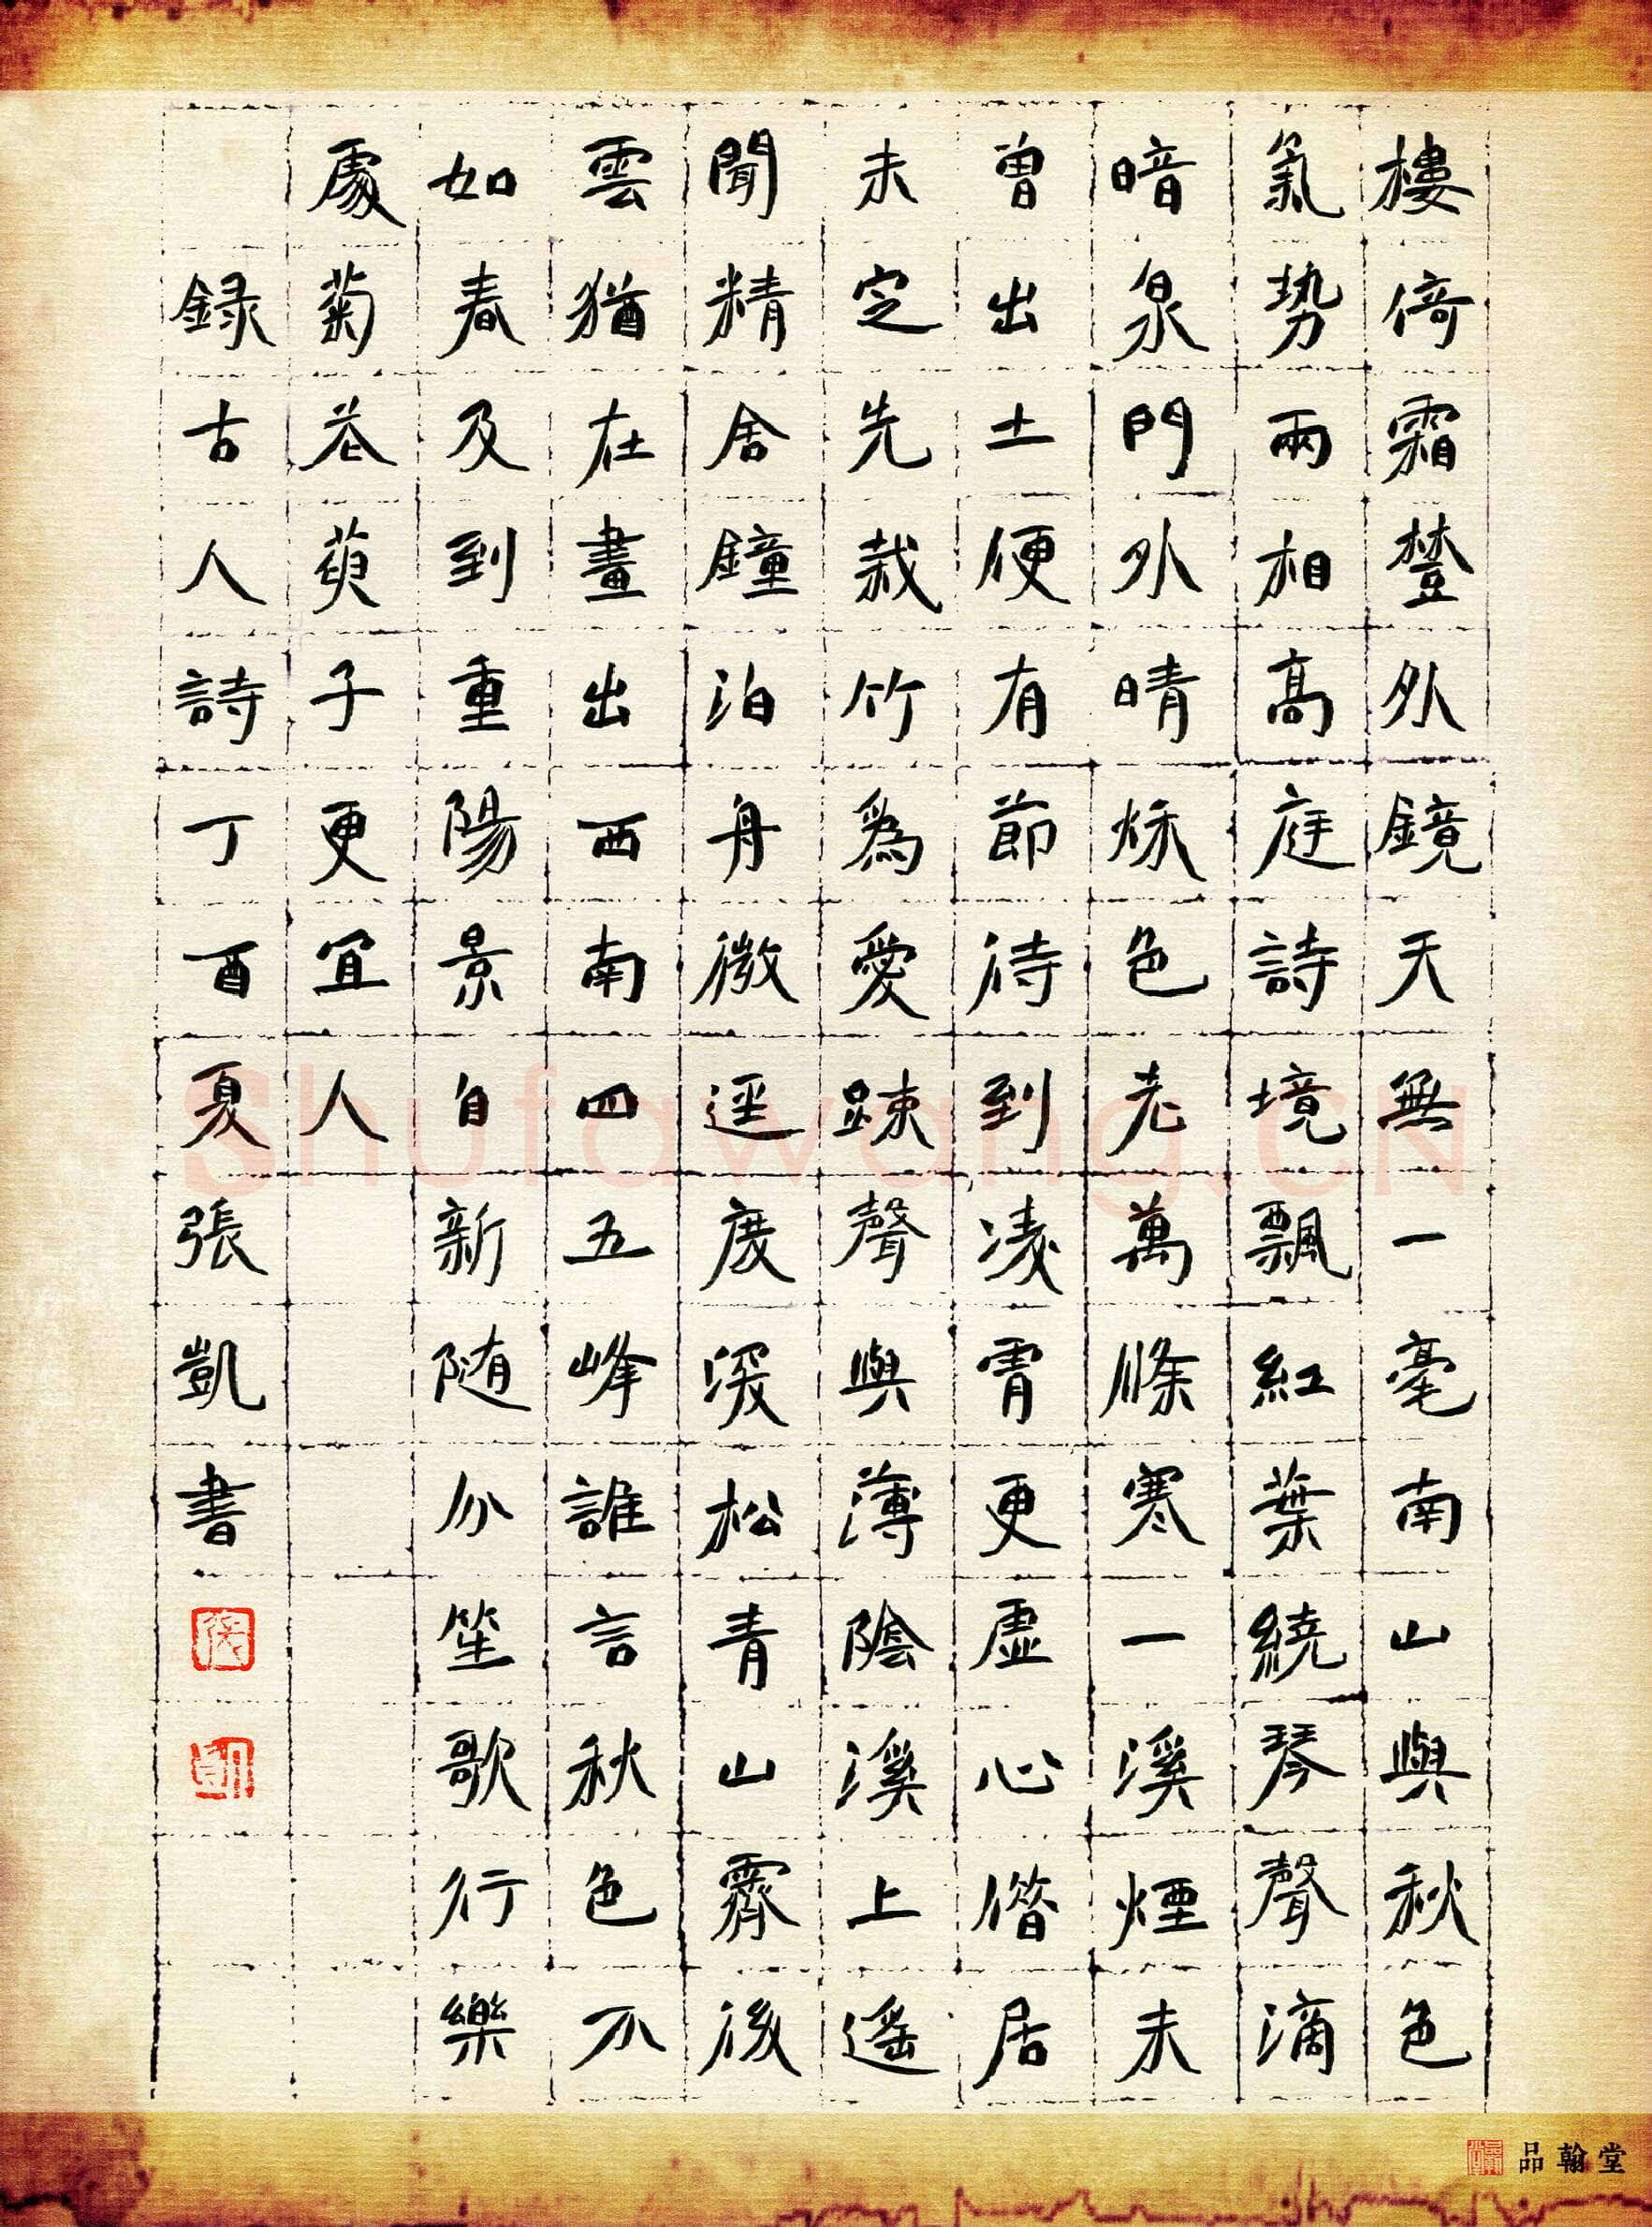 樓倚霜樹外鏡天無一毫南山與秋色
氣勢兩相高庭詩境飄紅葉繞琴聲滴
暗泉門外晴秌色老萬條寒一溪煙未
曾出土便有節待到凌霄更虛心偕居
未定先栽竹為愛踈聲與薄陰溪上遥
聞精舍鐘泊舟微逕度深松青山霽後
雲猶在畫出西南四五峰誰言秋色不
如春及到重陽景自新随分笙歌行樂
處菊花萸子更宜人
録古人詩丁酉夏張凱書
品翰堂
Shufawang.CN